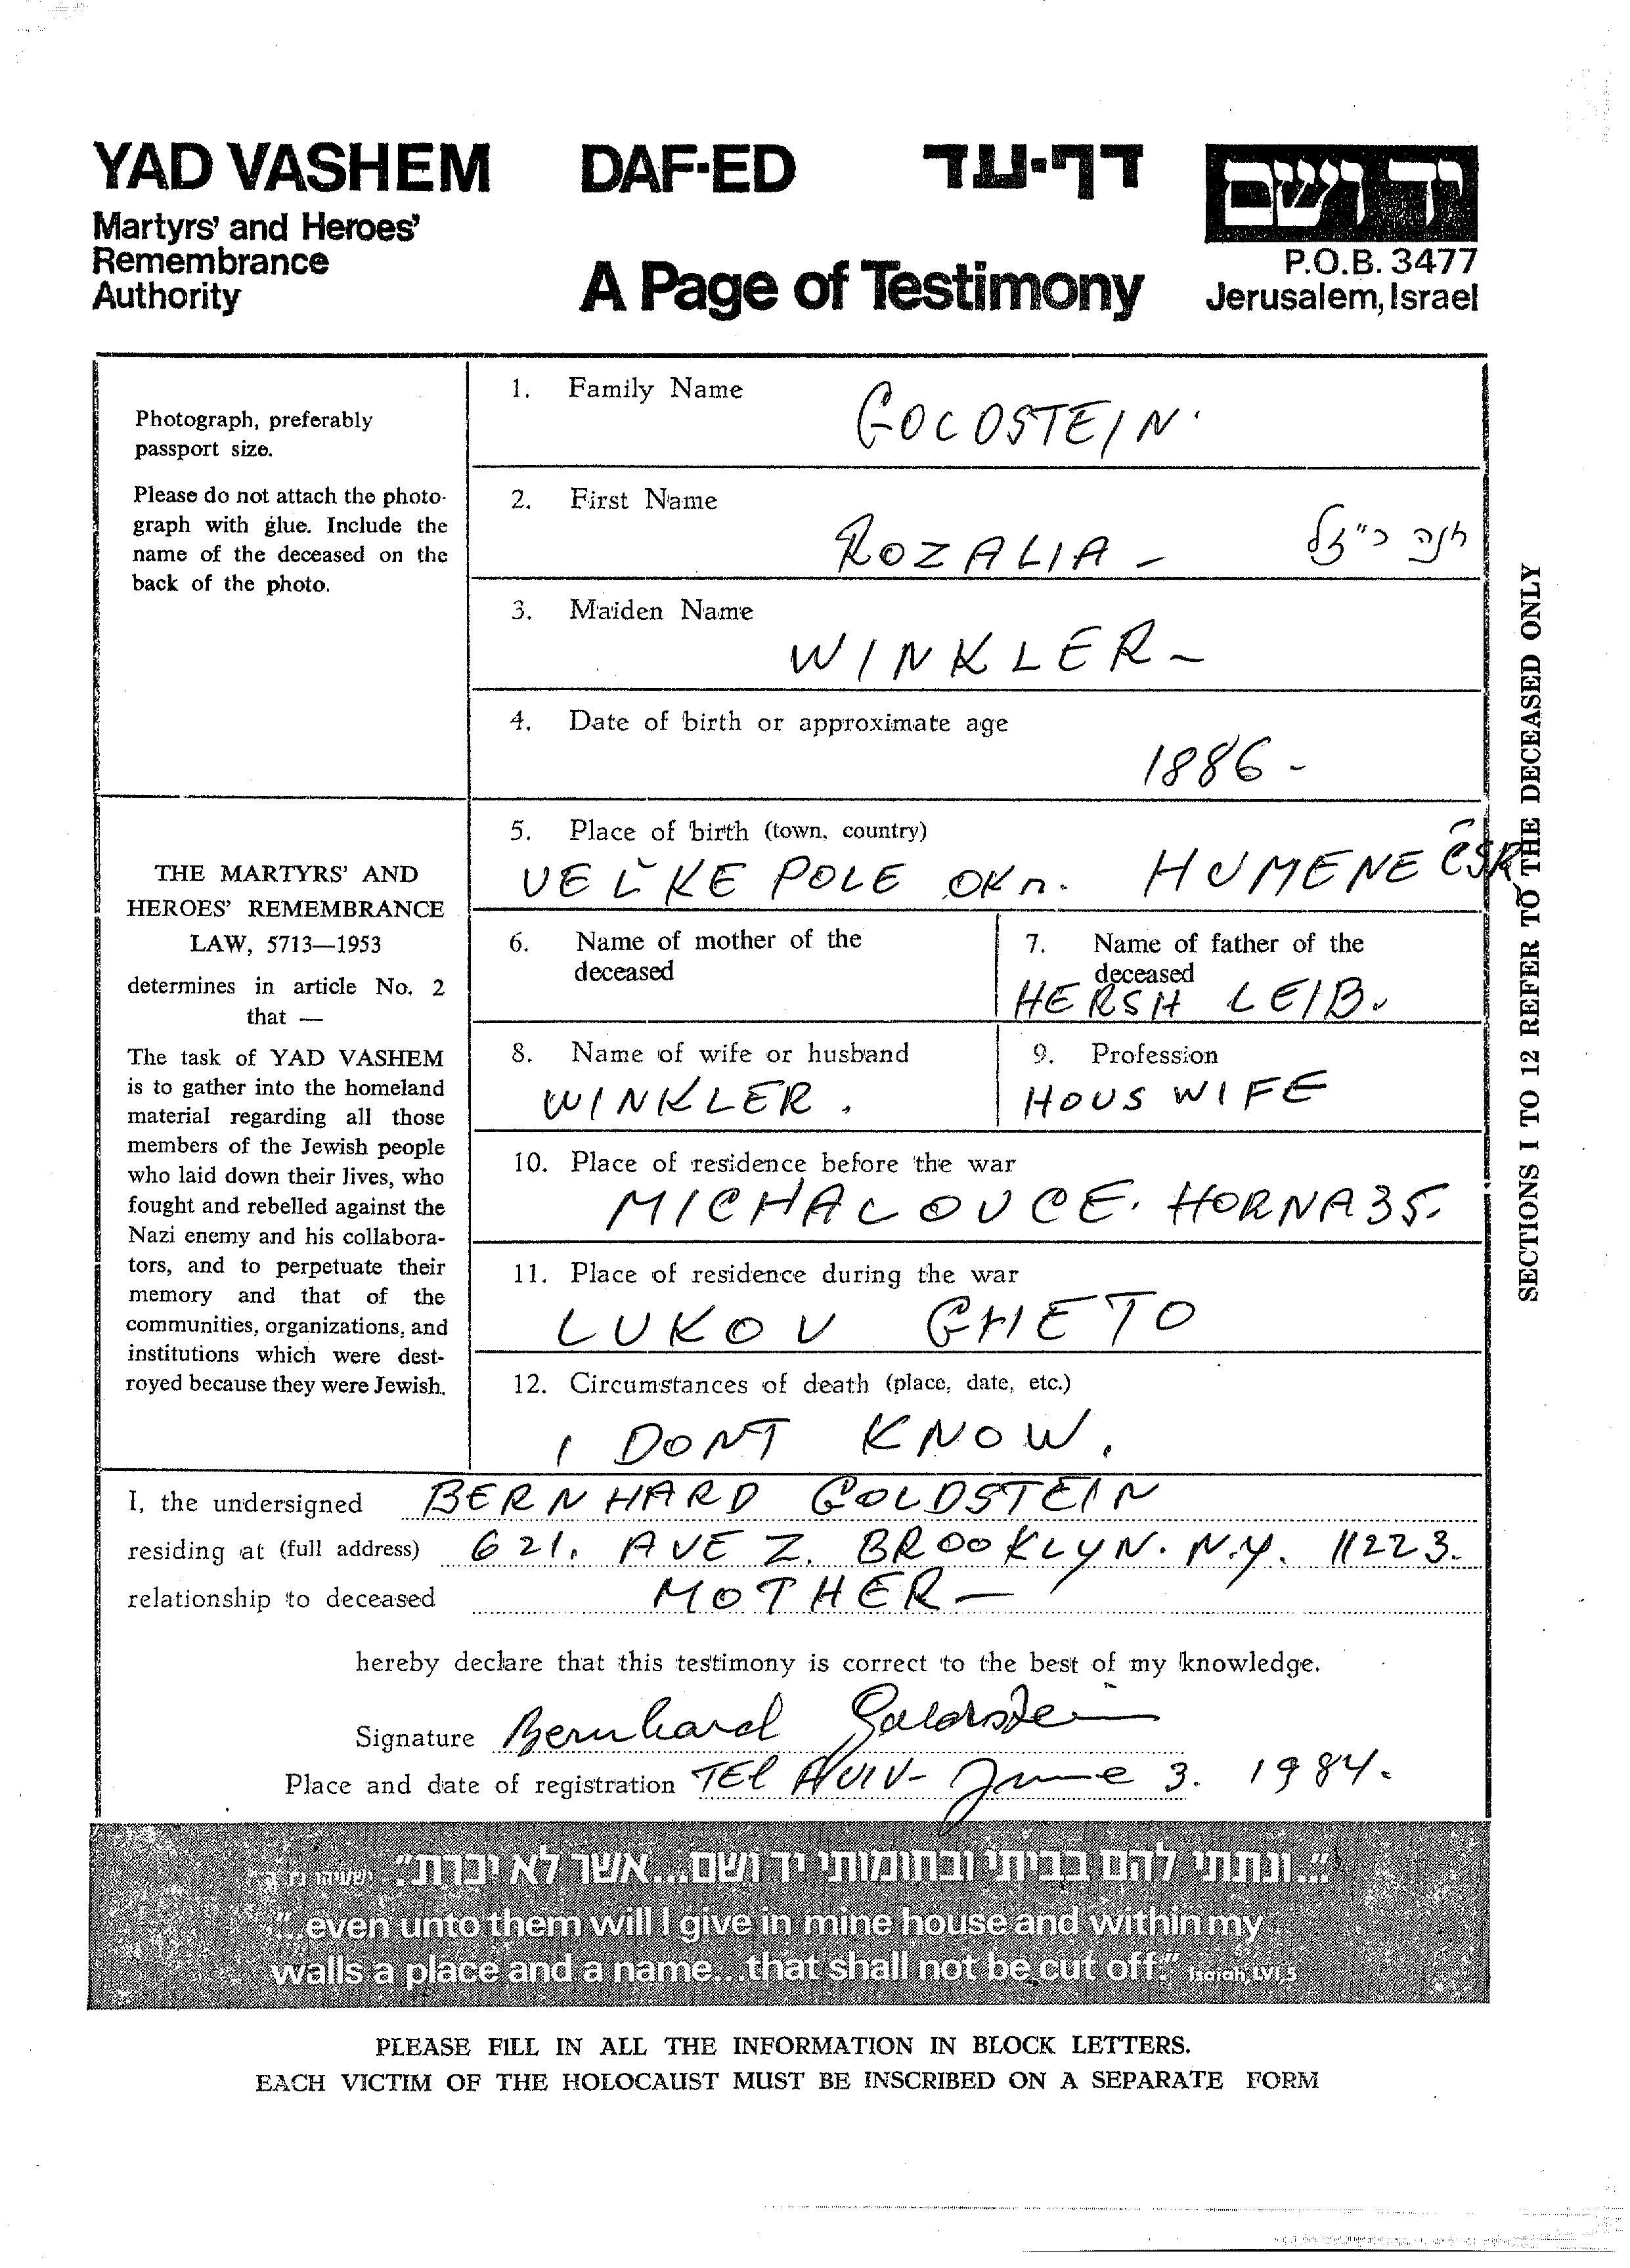 YAD VASHEM DAF-ED דף-עד יד ושם
Martyrs' and Heroes'
Remembrance
Authority
A Page of Testimony
P.O.B. 3477
Jerusalem, Israel
Photograph, preferably
passport size.
Please do not attach the photo-
graph with glue. Include the
name of the deceased on the
back of the photo.
THE MARTYRS' AND
HEROES' REMEMBRANCE
LAW, 5713—1953
determines in article No. 2
that —
The task of YAD VASHEM
is to gather into the homeland
material regarding all those
members of the Jewish people
who laid down their lives, who
fought and rebelled against the
Nazi enemy and his collabora-
tors, and to perpetuate their
memory and that of the
communities, organizations, and
institutions which were dest-
royed because they were Jewish.
1. Family Name
GOLDSTEIN.
2. First Name
ROZALIA - חנה
3. Maiden Name
WINKLER -
4. Date of birth or approximate age
1886 -
5. Place of birth (town, country)
VELKE POLE OKR. HUMENE ČSR
6. Name of mother of the
deceased
7. Name of father of the
deceased
HERSH LEIB.
8. Name of wife or husband
WINKLER.
9. Profession
HOUS WIFE
10. Place of residence before the war
MICHALOVCE. HORNA 35.
11. Place of residence during the war
LUKOV GHETO
12. Circumstances of death (place, date, etc.)
I DONT KNOW.
SECTIONS 1 TO 12 REFER TO THE DECEASED ONLY
I, the undersigned BERNHARD GOLDSTEIN
residing at (full address) 621. AVE Z. BROOKLYN. N.Y. 11223.
relationship to deceased MOTHER -
hereby declare that this testimony is correct to the best of my knowledge.
Signature Bernhard Goldstein
Place and date of registration TEL AVIV - June 3. 1984.
"...ונתתי להם בביתי ובחומותי יד ושם...אשר לא יכרת" ישעיהו נו, ה
"...even unto them will I give in mine house and within my
walls a place and a name...that shall not be cut off:" Isaiah, LVI,5
PLEASE FILL IN ALL THE INFORMATION IN BLOCK LETTERS.
EACH VICTIM OF THE HOLOCAUST MUST BE INSCRIBED ON A SEPARATE FORM